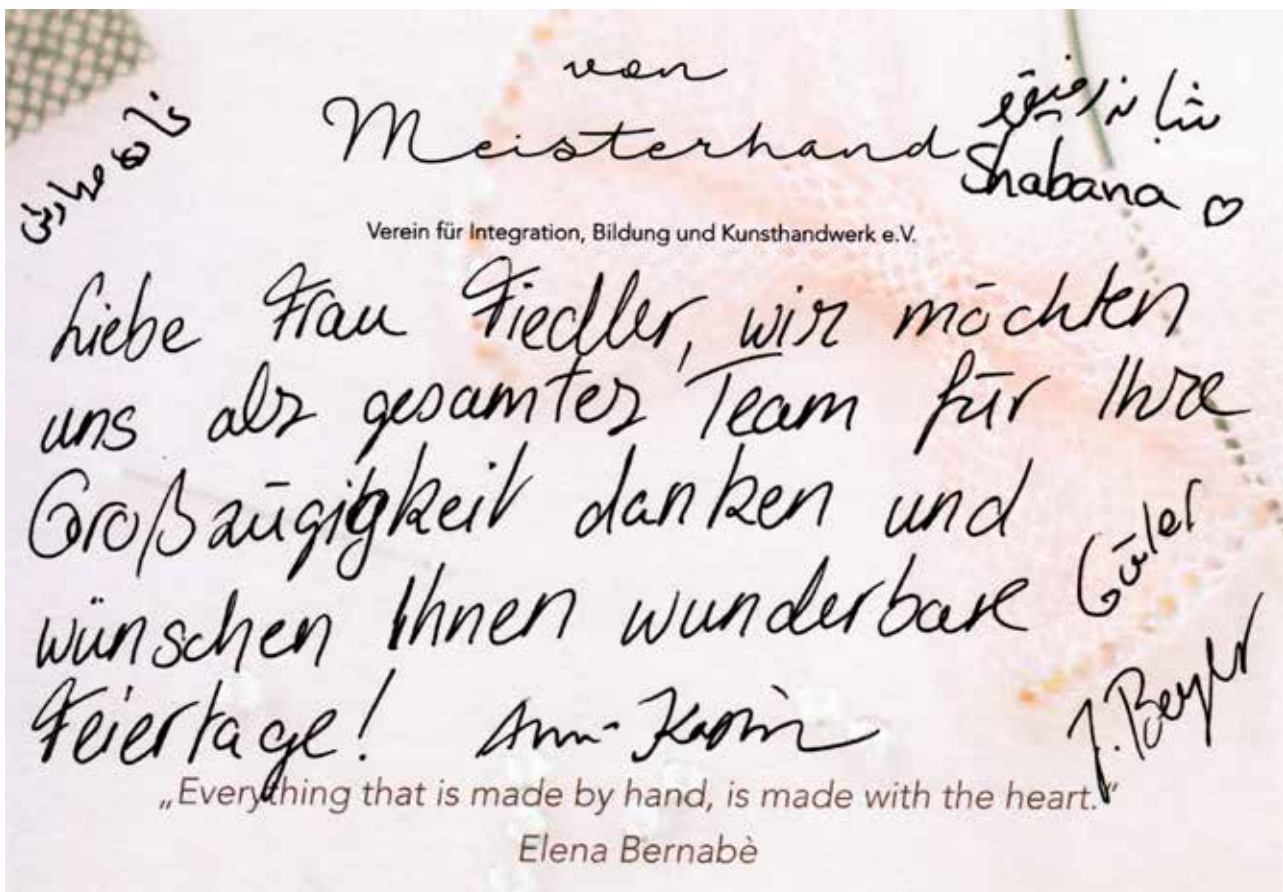 von
Meisterhand
Shabana ♡
Verein für Integration, Bildung und Kunsthandwerk e.V.
Liebe Frau Fiedler, wir möchten
uns als gesamtes Team für Ihre
Großzügigkeit danken und
wünschen Ihnen wunderbare
Güler
Feiertage! Ann-Katrin
„Everything that is made by hand, is made with the heart.“
Elena Bernabè